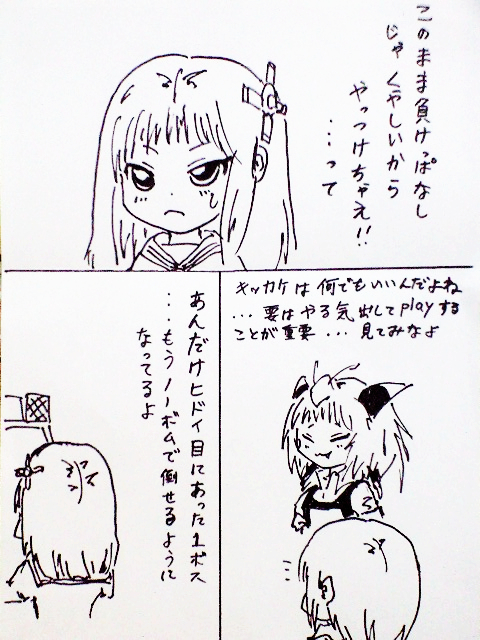 このまま負けっぱなし
じゃくやしいから
やっつけちゃえ!!
…って
キッカケは何でもいいんだよね
…要はやる気出してplayする
ことが重要…見てみなよ
あんだけヒドイ目にあった1ボス
…もうノーボムで倒せるように
なってるよ